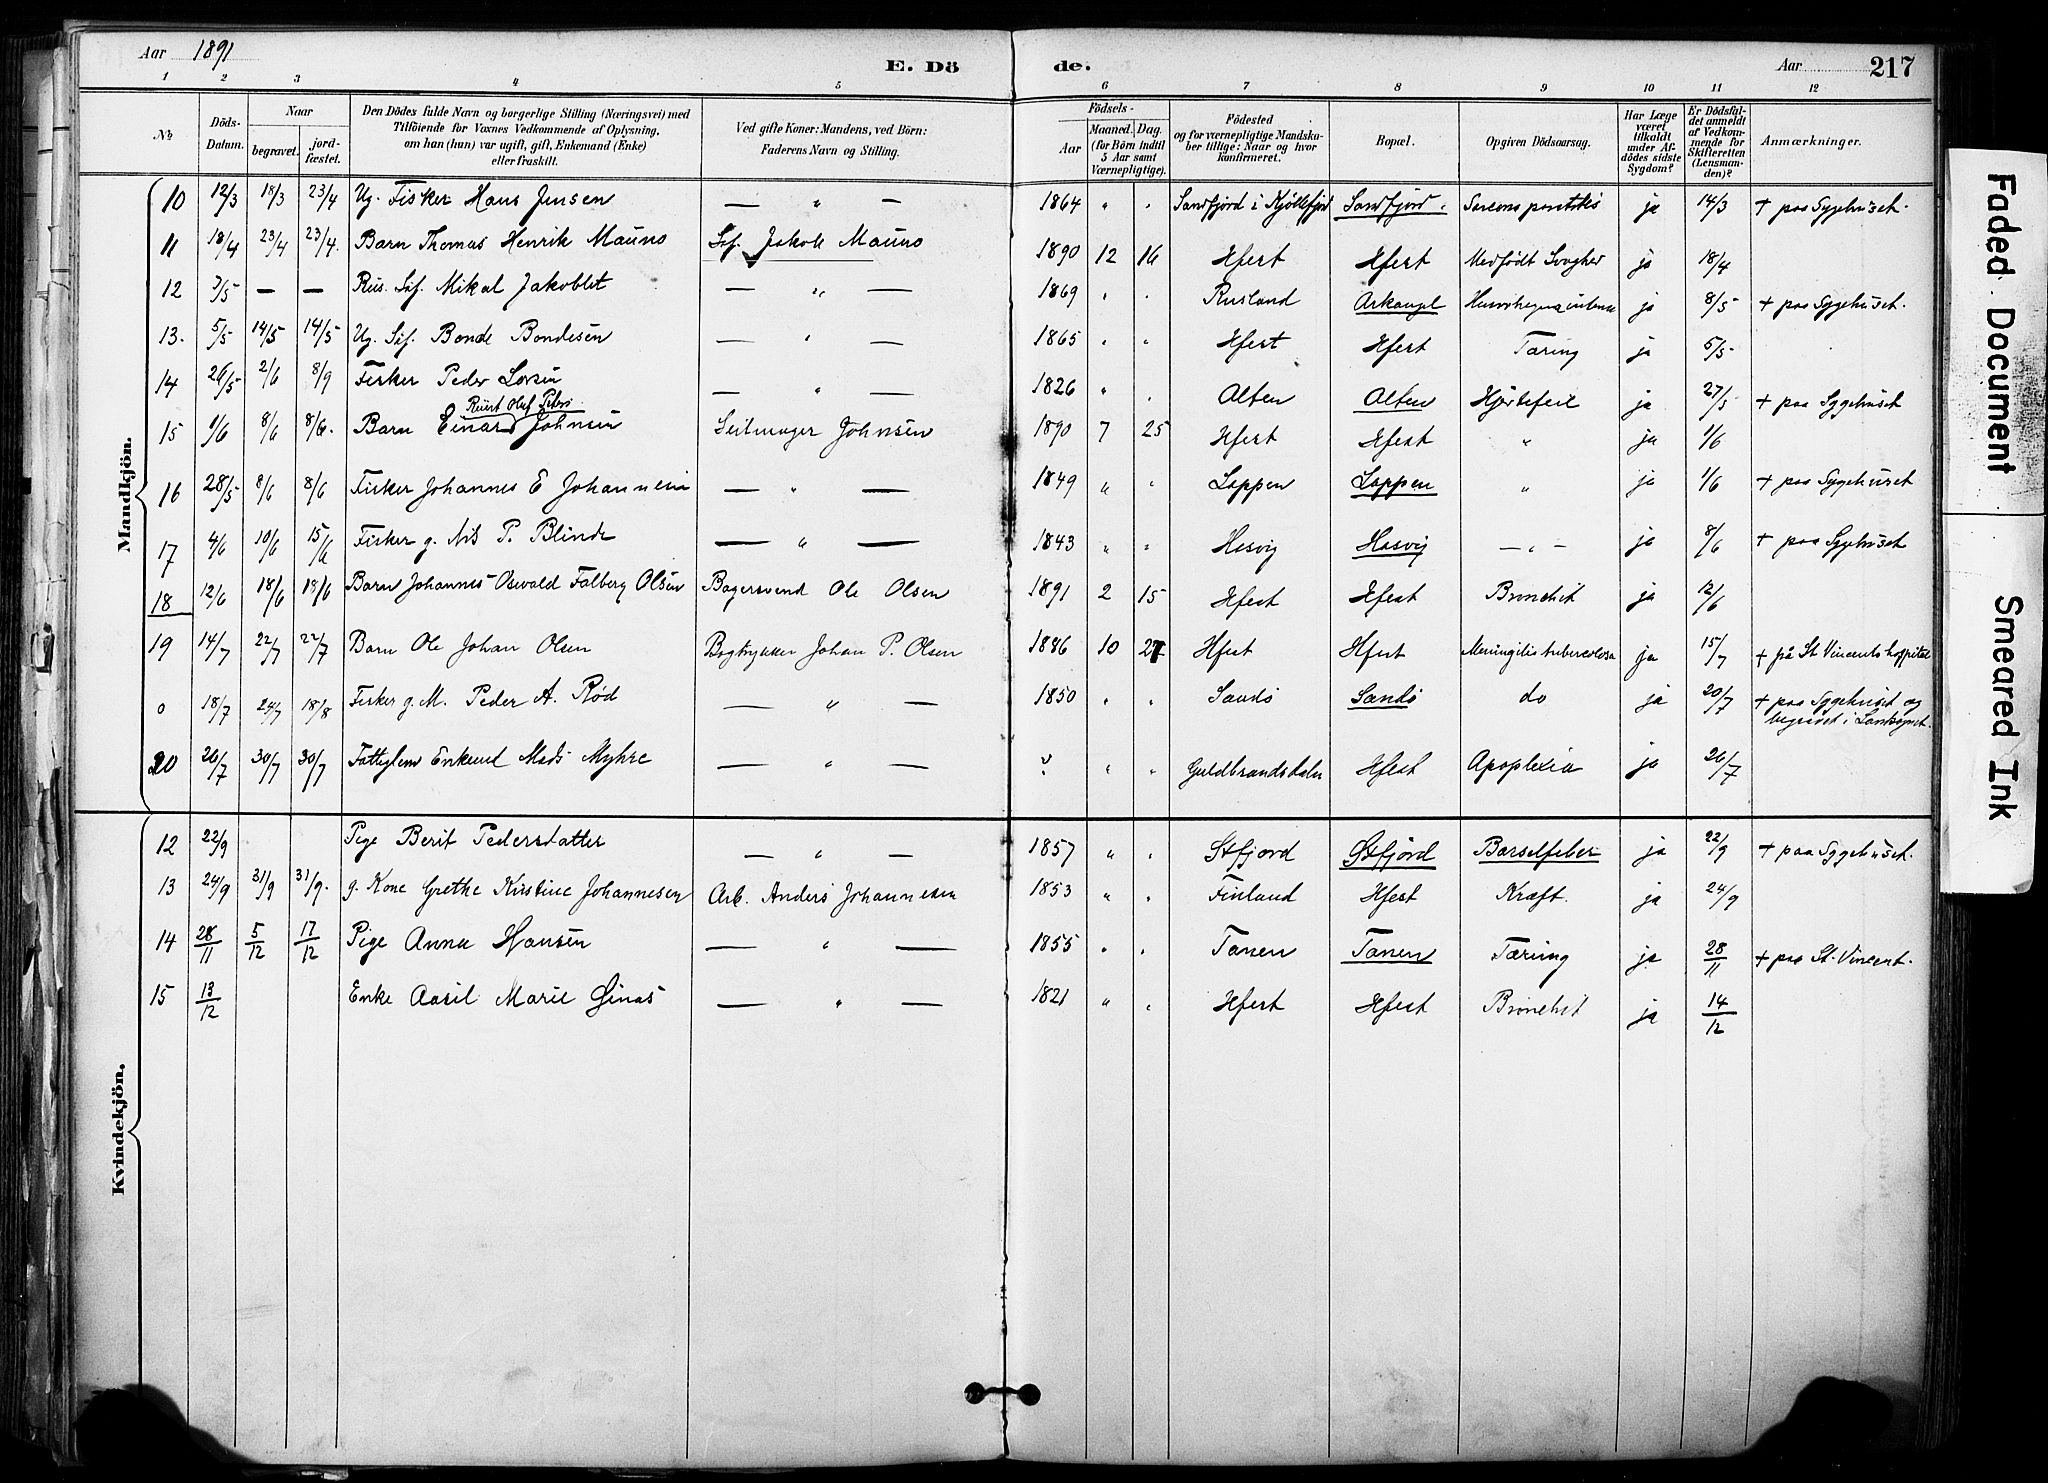 Aar 1891
E. Dö
de.
Aar
217
1 2 3 4 5 6 7 8 9 10 11 12
No
Döds-Datum.
Naar
begravet.
jord-fæstet.
Den Dödes fulde Navn og borgerlige Stilling (Næringsvei) med
Tilföiende for Voxnes Vedkommende af Oplysning,
om han (hun) var ugift, gift, Enkemand (Enke)
eller fraskilt.
Ved gifte Koner: Mandens, ved Börn:
Faderens Navn og Stilling.
Födsels-
Aar
Maaned. Dag.
(for Börn indtil
5 Aar samt
Værnepligtige).
Födested
og for værnepligtige Mandska-
ber tillige: Naar og hvor
konfirmeret.
Bopæl.
Opgiven Dödsaarsag.
Har Læge
været
tilkaldt
under Af-
dödes sidste
Sygdom?
Er Dödsfal-
det anmeldt
af Vedkom-
mende for
Skifteretten
(Lensman-
den)?
Anmærkninger.
Mandkjön.
10 12/3 18/3 23/4 Ug. Fisker Hans Jensen — " — 1864 " " Sandfjord i Kjøllefjord Sandfjord ja 14/3 + paa Sygehuset.
11 18/4 23/4 23/4. Barn Thomas Henrik Mauno Jakob Mauno 1890 12 16 Hfest Hfest Medfødt Svaghed ja 18/4
12 3/5 — — Rus. Mikal Jakoblet — " — 1869 " " Rusland Arkangel ja 8/5 + paa Sygehuset.
13. 5/5 14/5 14/5 Ug. Bonde Bondesen — " — 1865 " " Hfest Hfest Tæring ja 5/5
14 26/5 2/6 8/9 Fisker Peder Larsen — " — 1826 " " Alten Alten Hjertefeil ja 27/5 + paa Sygehuset
15 1/6 8/6 8/6. Barn Einar Johnsen Seilmager Johnsen 1890 7 25 Hfest Hfest " ja 1/6
16 28/5 8/6 8/6 Fisker Johannes E Johannesen — " — 1849 " " Loppen Loppen " ja 1/6 + paa Sygehuset
17 4/6 10/6 15/6 Fisker g. Nils P. Blinde — " — 1843 " " Hasvig Hasvig — " — ja 8/6 + paa Sygehuset
18 12/6 18/6 18/6 Barn Johannes Oswald Falberg Olsen Bagersvend Ole Olsen 1891 2 15 Hfest Hfest Bronchit ja 12/6
19 14/7 22/7 22/7 Barn Ole Johan Olsen Bogtrykker Johan P. Olsen 1886 10 27 Hfest Hfest Meningitis tuberculosa ja 15/7 + på St Vincents hospital
0 18/7 24/7 18/8 Fisker g. M. Peder A. Rød — " — 1850 " " Sandø Sandø do ja 20/7 + paa Sygehuset og
begravet i Landsognet.
20 26/7 30/7 30/7 Fattiglem Enkemd Mads Myhre — " — " " Guldbrandsdalen Hfest Apoplexia ja 26/7
Kvindekjön.
12 22/9 Pige Berit Pedersdatter — " — 1857 " " Stfjord Stfjord Barselfeber ja 22/9 + paa Sygehuset.
13 24/9 31/9 31/9. g. Kone Grethe Kristine Johannesen Arb. Anders Johannesen 1853 " " Finland Hfest Kræft. ja 24/9
14 28/11 5/12 17/12 Pige Anna Hansen — " — 1855 " " Tanen Tanen Tæring ja 28/11 + paa St. Vincent.
15 13/12 Enke Marie — " — 1821 " " Hfest Hfest Bronchit ja 14/12
Faded Document
Smeared Ink